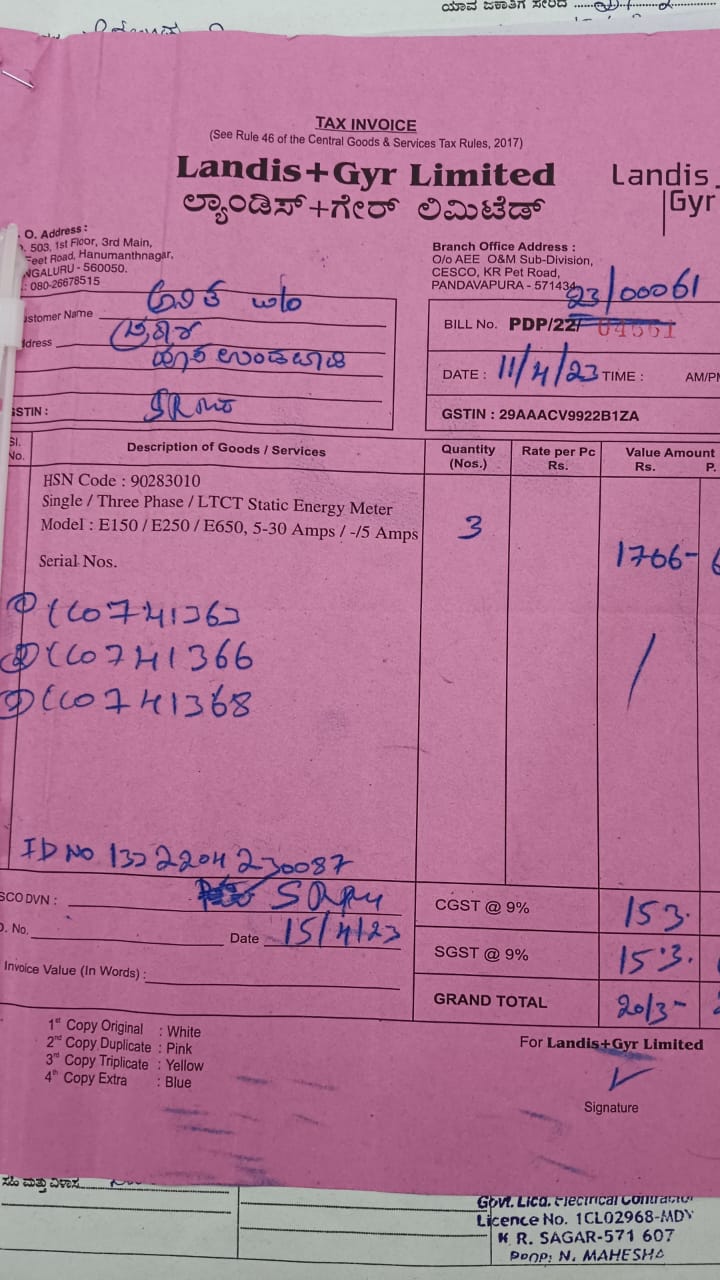 ಯಾವ ಜಕಾತಿಗೆ ಸೇರಿದ
TAX INVOICE
(See Rule 46 of the Central Goods & Services Tax Rules, 2017)
Landis+Gyr Limited
ಲ್ಯಾಂಡಿಸ್+ಗೇರ್ ಲಿಮಿಟೆಡ್
Landis
Gyr
O. Address :
503, 1st Floor, 3rd Main,
Feet Road, Hanumanthnagar,
NGALURU - 560050.
: 080-26678515
Branch Office Address :
O/o AEE O&M Sub-Division,
CESCO, KR Pet Road,
PANDAVAPURA - 571434
ustomer Name
ddress
SRPM
GSTIN :
23/00061
BILL No. PDP/22/
DATE : 11/4/23 TIME : AM/PM
GSTIN : 29AAACV9922B1ZA
Sl. No. Description of Goods / Services Quantity (Nos.) Rate per Pc Rs. Value Amount Rs. P.
HSN Code : 90283010
Single / Three Phase / LTCT Static Energy Meter
Model : E150 / E250 / E650, 5-30 Amps / -/5 Amps
3
1706-
Serial Nos.
① CC0741363
② CC0741366
③ CC0741368
ID NO 1322204230087
SCO DVN :
CGST @ 9% 153.
O. No. Date 15/4/23
SGST @ 9% 153.
Invoice Value (In Words) :
GRAND TOTAL 2013-
1st Copy Original : White
2nd Copy Duplicate : Pink
3rd Copy Triplicate : Yellow
4th Copy Extra : Blue
For Landis+Gyr Limited
Signature
ಸಹಿ ಮತ್ತು ವಿಳಾಸ
Govt. Licd. Electrical Contractor
Licence No. 1CL02968-MDY
K R. SAGAR-571 607
PROP: N. MAHESHA